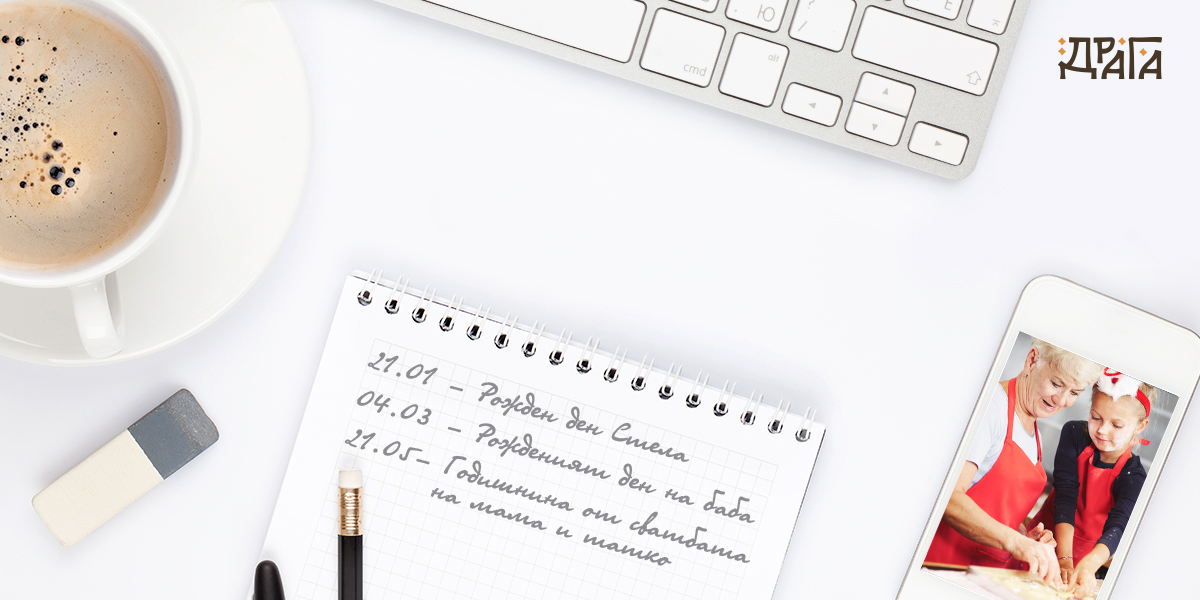 Ю
?
/
Е
cmd
alt
ДРАГА
21.01 - Рожден ден Стела
04.03 - Рожденият ден на баба
21.05- Годишнина от сватбата
на мама и татко